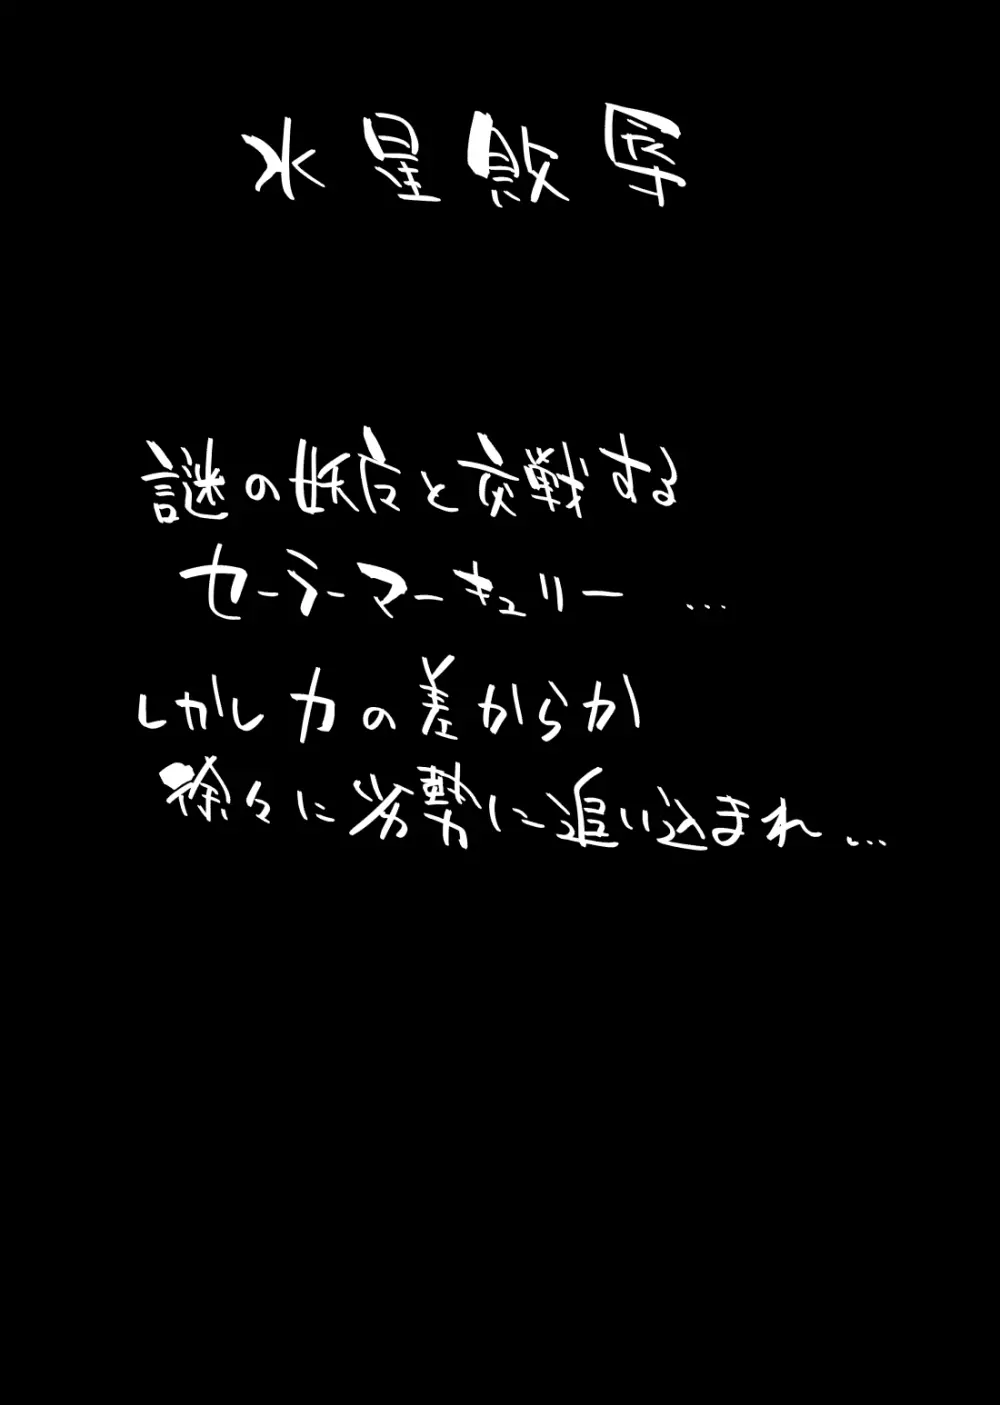 水星敗辱
謎の妖魔と交戦する
セーラーマーキュリー …
しかし力の差からか
徐々に劣勢に追い込まれ…